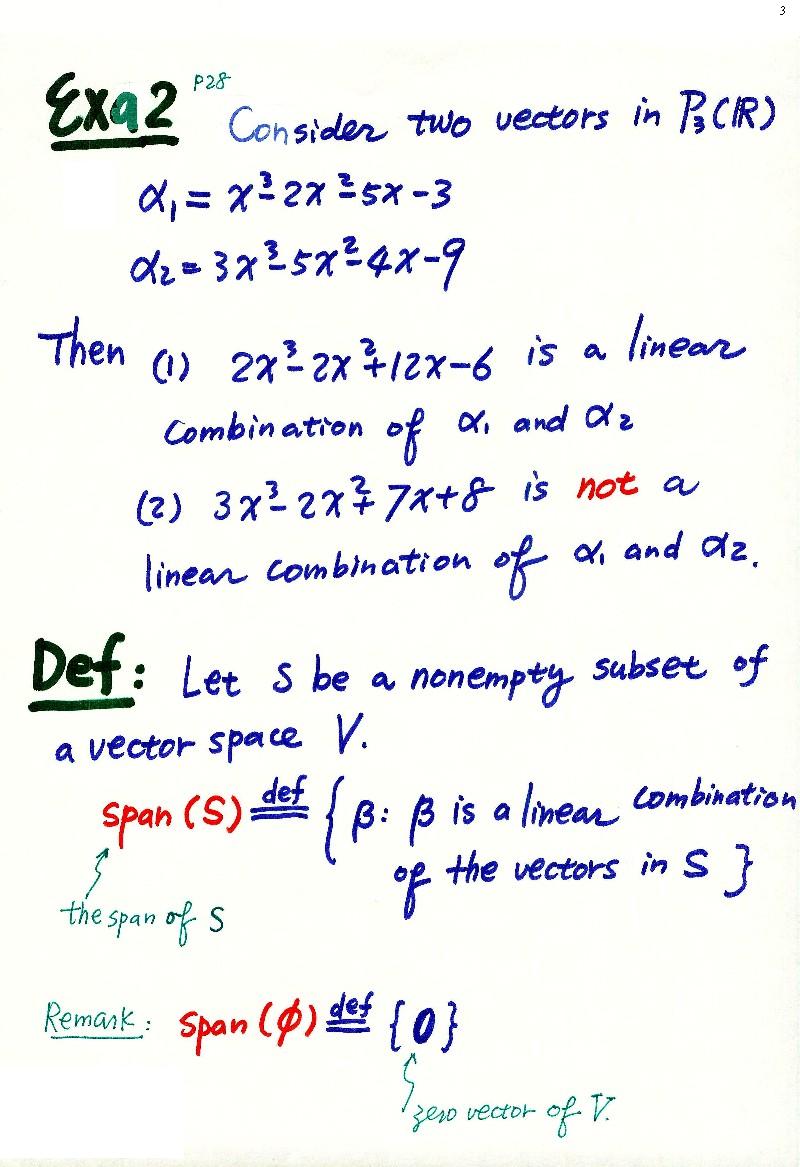 3
Exa2 P28 Consider two vectors in P₃(ℝ)
α₁ = x³-2x²-5x-3
α₂ = 3x³-5x²-4x-9
Then (1) 2x³-2x²+12x-6 is a linear
combination of α₁ and α₂
(2) 3x³-2x²+7x+8 is not a
linear combination of α₁ and α₂.
Def: Let S be a nonempty subset of
a vector space V.
span(S) def = { β: β is a linear combination
of the vectors in S }
the span of S
Remark: span(ϕ) def = {0}
zero vector of V.